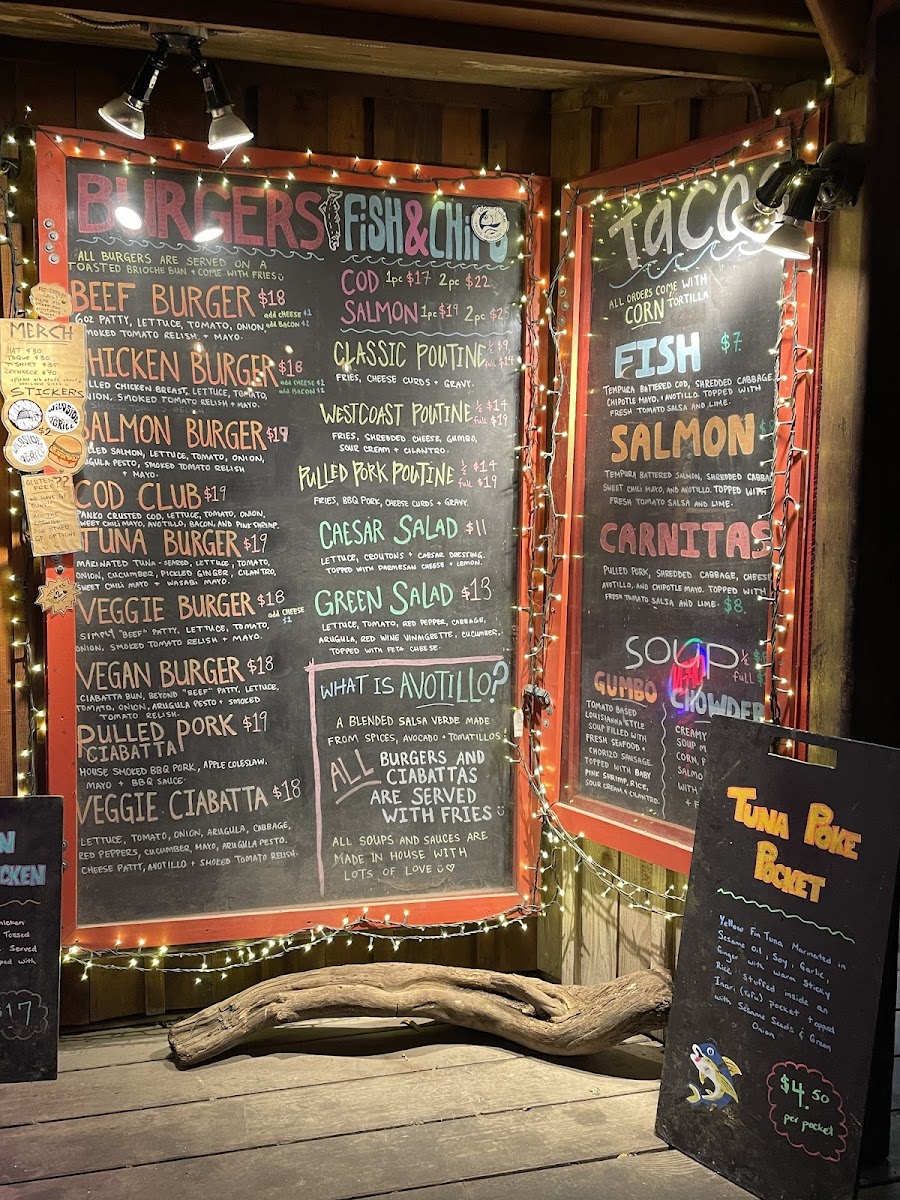 BURGERS
ALL BURGERS ARE SERVED ON A
TOASTED BRIOCHE BUN + COME WITH FRIES
BEEF BURGER $18
6OZ PATTY, LETTUCE, TOMATO, ONION add CHEESE $1
SMOKED TOMATO RELISH + MAYO. add BACON $2
CHICKEN BURGER $18
GRILLED CHICKEN BREAST, LETTUCE, TOMATO, add CHEESE $1
ONION, SMOKED TOMATO RELISH + MAYO. add BACON $2
SALMON BURGER $19
SALMON, LETTUCE, TOMATO, ONION,
ARUGULA PESTO, SMOKED TOMATO RELISH
+ MAYO.
COD CLUB $19
PANKO CRUSTED COD, LETTUCE, TOMATO, ONION,
SWEET CHILI MAYO, AVOTILLO, BACON, AND PINK SHRIMP.
TUNA BURGER $19
MARINATED TUNA - SEARED, LETTUCE, TOMATO,
ONION, CUCUMBER, PICKLED GINGER, CILANTRO,
SWEET CHILI MAYO + WASABI MAYO.
VEGGIE BURGER $18 add CHEESE
$1
SIMPLY "BEEF" PATTY, LETTUCE, TOMATO,
ONION, SMOKED TOMATO RELISH + MAYO.
VEGAN BURGER $18
CIABATTA BUN, BEYOND "BEEF" PATTY, LETTUCE,
TOMATO, ONION, ARUGULA PESTO + SMOKED
TOMATO RELISH.
PULLED PORK $19
CIABATTA
HOUSE SMOKED BBQ PORK, APPLE COLESLAW,
MAYO + BBQ SAUCE.
VEGGIE CIABATTA $18
LETTUCE, TOMATO, ONION, ARUGULA, CABBAGE,
RED PEPPERS, CUCUMBER, MAYO, ARUGULA PESTO.
CHEESE PATTY, AVOTILLO + SMOKED TOMATO RELISH.
FISH & CHIPS
COD 1pc $17 2pc $22
SALMON 1pc $19 2pc $25
CLASSIC POUTINE ½ $9
full $14
FRIES, CHEESE CURDS + GRAVY.
WESTCOAST POUTINE ½ $14
full $19
FRIES, SHREDDED CHEESE, GUMBO,
SOUR CREAM + CILANTRO.
PULLED PORK POUTINE ½ $14
full $19
FRIES, BBQ PORK, CHEESE CURDS + GRAVY.
CAESAR SALAD $11
LETTUCE, CROUTONS + CAESAR DRESSING.
TOPPED WITH PARMESAN CHEESE + LEMON.
GREEN SALAD $13
LETTUCE, TOMATO, RED PEPPER, CABBAGE,
ARUGULA, RED WINE VINAGRETTE, CUCUMBER,
TOPPED WITH FETA CHEESE.
WHAT IS AVOTILLO?
A BLENDED SALSA VERDE MADE
FROM SPICES, AVOCADO + TOMATILLOS
ALL BURGERS AND
CIABATTAS
ARE SERVED
WITH FRIES
ALL SOUPS AND SAUCES ARE
MADE IN HOUSE WITH
LOTS OF LOVE
TACOS
ALL ORDERS COME WITH
CORN TORTILLA
FISH $7
TEMPURA BATTERED COD, SHREDDED CABBAGE,
CHIPOTLE MAYO, + AVOTILLO. TOPPED WITH
FRESH TOMATO SALSA AND LIME.
SALMON
TEMPURA BATTERED SALMON, SHREDDED CABBAGE
SWEET CHILI MAYO, AND AVOTILLO. TOPPED WITH
FRESH TOMATO SALSA AND LIME.
CARNITAS
PULLED PORK, SHREDDED CABBAGE, CHEESE
AVOTILLO, AND CHIPOTLE MAYO. TOPPED WITH
FRESH TOMATO SALSA AND LIME. $8.
SOUP ½
full
GUMBO
TOMATO BASED
LOUISIANNA STYLE
SOUP FILLED WITH
FRESH SEAFOOD +
CHORIZO SAUSAGE.
TOPPED WITH BABY
PINK SHRIMP, RICE,
SOUR CREAM + CILANTRO.
CHOWDER
CREAMY
SOUP
CORN,
SALMO
WITH
MERCH
HAT $30
TOQUE $30
T-SHIRT $35
STICKERS
WILDSIDE
GRILL
TUNA POKE
POCKET
Yellow Fin Tuna Marinated in
Sesame oil, Soy, Garlic,
Ginger with warm Sticky
Rice. Stuffed inside an
Inari (tofu) pocket topped
with Sesame Seeds & Green
Onion
$4.50
per pocket
CKEN
Tossed
Served
with
$17